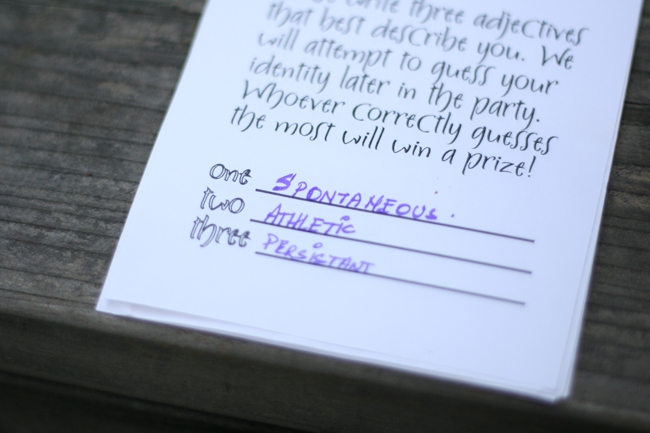 write three adjectives
that best describe you. We
will attempt to guess your
identity later in the party.
Whoever correctly guesses
the most will win a prize!
one SPONTANEOUS.
two ATHLETIC
three PERSISTANT